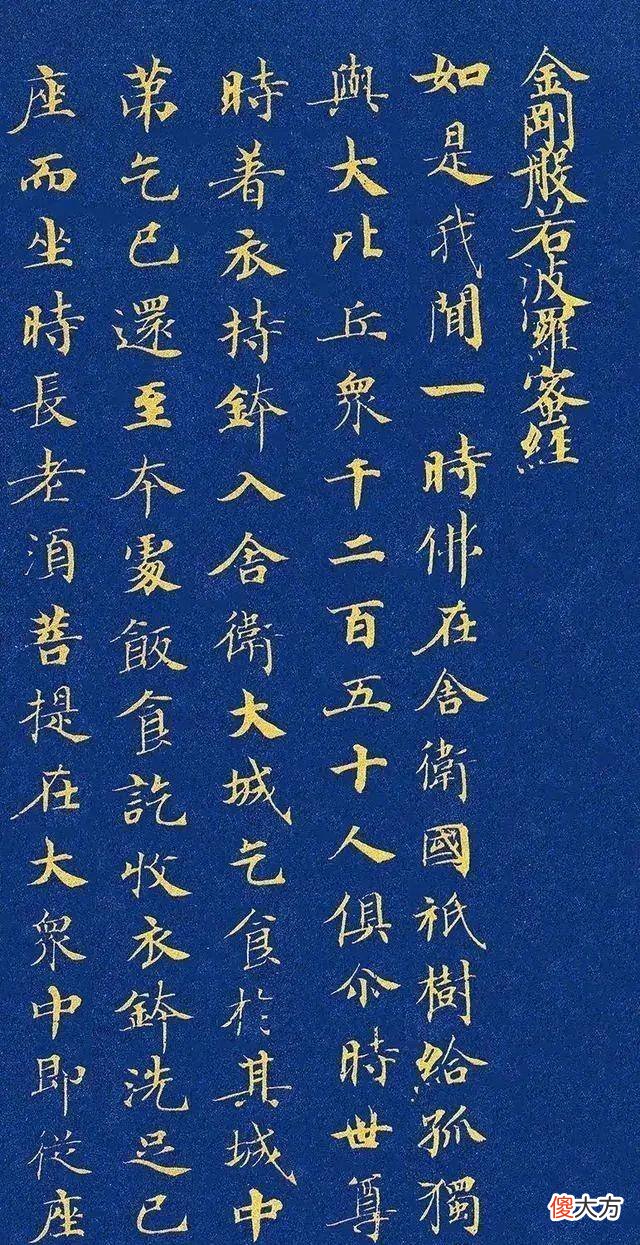 金剛般若波羅蜜經
如是我聞一時佛在舍衛國祇樹給孤獨
與大比丘衆千二百五十人俱尒時世尊
時着衣持鉢入舍衛大城乞食於其城中
第乞已還至本處飯食訖收衣鉢洗足已
座而坐時長老須菩提在大衆中即從座
傻大方